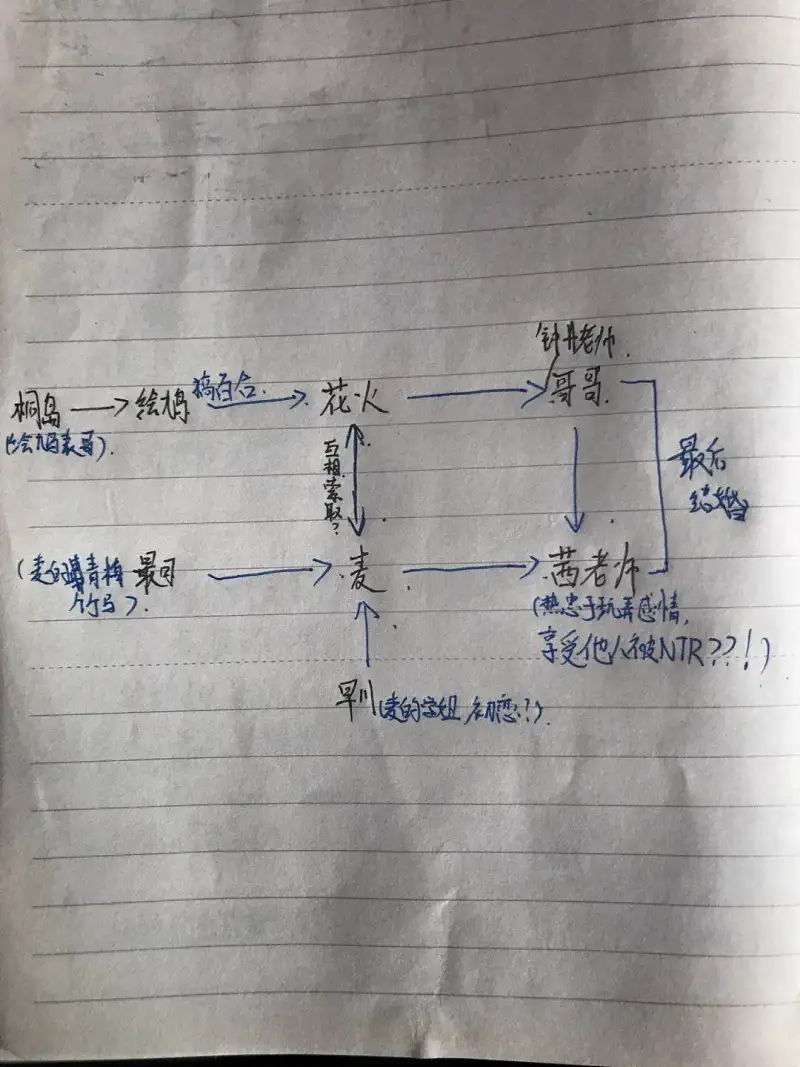 钟井老师.
桐岛 → 绘鸠 搞百合. → 花火 → 哥哥.
(绘鸠表哥).
互相索取?
最后
结婚
(麦的青梅 最可 → 麦 → 茜老师
竹马).
(热忠于玩弄感情,
享受他人被NTR??!)
早川(麦的学姐,初恋?).